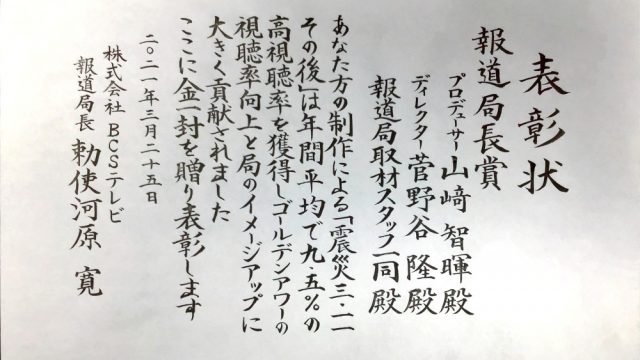 表彰状
報道局長賞
プロデューサー 山﨑 智暉殿
ディレクター 菅野谷 隆殿
報道局取材スタッフ一同 殿
あなた方の制作による「震災三・一一
その後」は年間平均で九・五％の
高視聴率を獲得しゴールデンアワーの
視聴率向上と局のイメージアップに
大きく貢献されました
ここに金一封を贈り表彰します
二〇二一年三月二十五日
株式会社 BCSテレビ
報道局長 勅使河原 寛